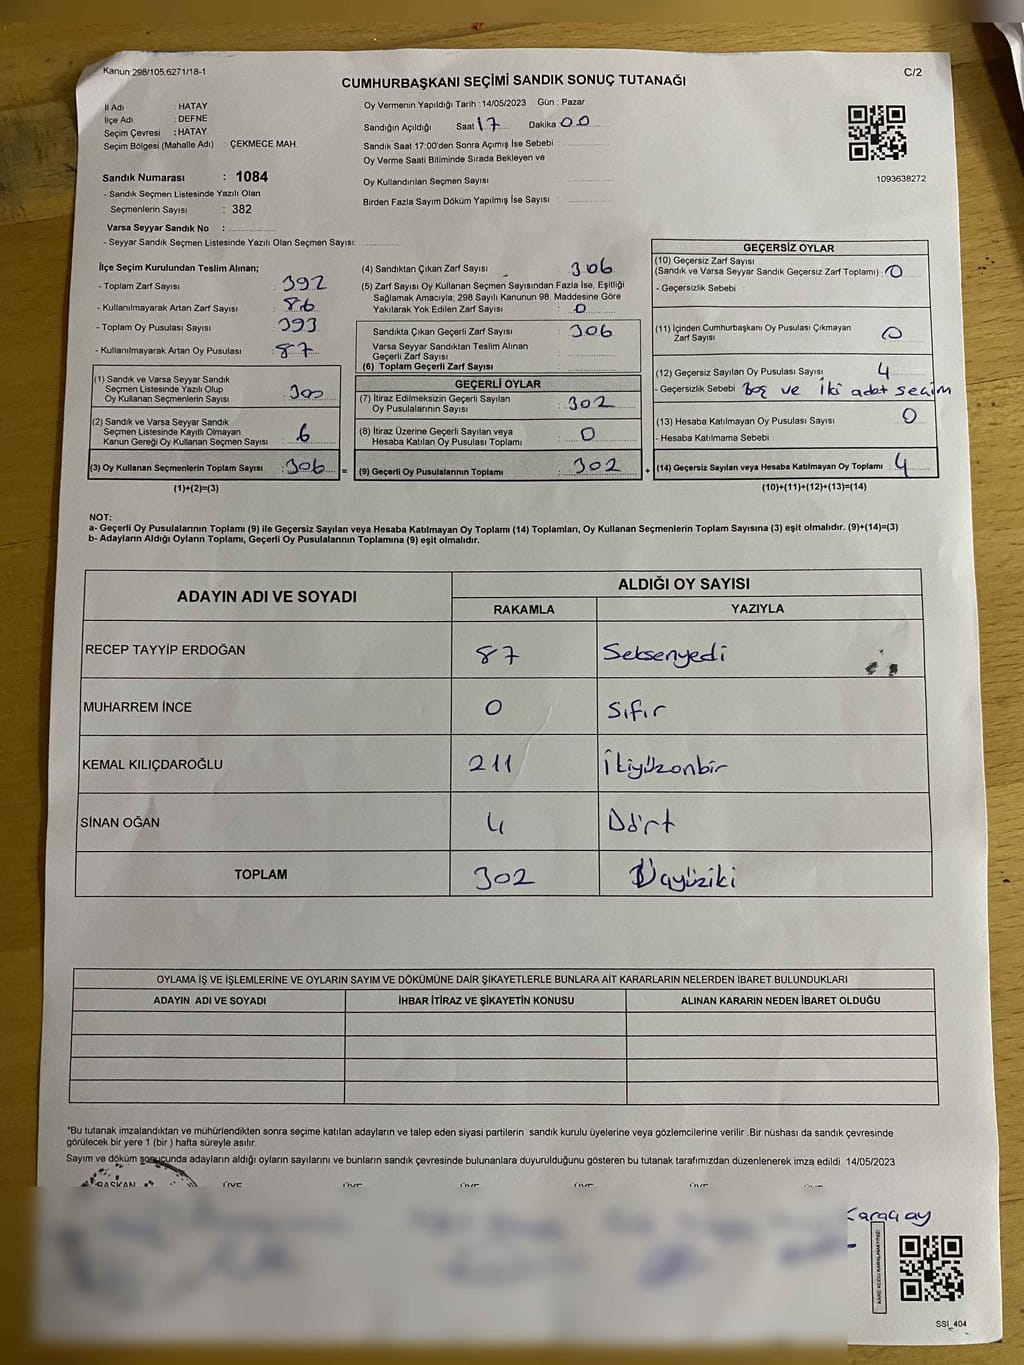 Kanun 298/105,6271/18-1
C/2
CUMHURBAŞKANI SEÇİMİ SANDIK SONUÇ TUTANAĞI
İl Adı : HATAY
İlçe Adı : DEFNE
Seçim Çevresi : HATAY
Seçim Bölgesi (Mahalle Adı) : ÇEKMECE MAH.
Sandık Numarası : 1084
- Sandık Seçmen Listesinde Yazılı Olan
Seçmenlerin Sayısı : 382
Varsa Seyyar Sandık No :
- Seyyar Sandık Seçmen Listesinde Yazılı Olan Seçmen Sayısı:
Oy Vermenin Yapıldığı Tarih : 14/05/2023 Gün : Pazar
Sandığın Açıldığı Saat 17 Dakika 00
Sandık Saat 17:00'den Sonra Açımış İse Sebebi
Oy Verme Saati Bitiminde Sırada Bekleyen ve
Oy Kullandırılan Seçmen Sayısı
Birden Fazla Sayım Döküm Yapılmış İse Sayısı
1093638272
İlçe Seçim Kurulundan Teslim Alınan;
- Toplam Zarf Sayısı : 392
- Kullanılmayarak Artan Zarf Sayısı : 86
- Toplam Oy Pusulası Sayısı : 393
- Kullanılmayarak Artan Oy Pusulası : 87
(1) Sandık ve Varsa Seyyar Sandık
Seçmen Listesinde Yazılı Olup
Oy Kullanan Seçmenlerin Sayısı : 300
(2) Sandık ve Varsa Seyyar Sandık
Seçmen Listesinde Kayıtlı Olmayan
Kanun Gereği Oy Kullanan Seçmen Sayısı : 6
(3) Oy Kullanan Seçmenlerin Toplam Sayısı : 306 =
(1)+(2)=(3)
(4) Sandıktan Çıkan Zarf Sayısı : 306
(5) Zarf Sayısı Oy Kullanan Seçmen Sayısından Fazla İse, Eşitliği
Sağlamak Amacıyla; 298 Sayılı Kanunun 98. Maddesine Göre
Yakılarak Yok Edilen Zarf Sayısı : 0
Sandıkta Çıkan Geçerli Zarf Sayısı : 306
Varsa Seyyar Sandıktan Teslim Alınan
Geçerli Zarf Sayısı
(6) Toplam Geçerli Zarf Sayısı
GEÇERLİ OYLAR
(7) İtiraz Edilmeksizin Geçerli Sayılan
Oy Pusulalarının Sayısı : 302
(8) İtiraz Üzerine Geçerli Sayılan veya
Hesaba Katılan Oy Pusulası Toplamı : 0
(9) Geçerli Oy Pusulalarının Toplamı : 302 +
GEÇERSİZ OYLAR
(10) Geçersiz Zarf Sayısı
(Sandık ve Varsa Seyyar Sandık Geçersiz Zarf Toplamı) : 0
- Geçersizlik Sebebi :
(11) İçinden Cumhurbaşkanı Oy Pusulası Çıkmayan
Zarf Sayısı : 0
(12) Geçersiz Sayılan Oy Pusulası Sayısı : 4
- Geçersizlik Sebebi : Boş ve İki adet seçim
(13) Hesaba Katılmayan Oy Pusulası Sayısı : 0
- Hesaba Katılmama Sebebi :
(14) Geçersiz Sayılan veya Hesaba Katılmayan Oy Toplamı : 4
(10)+(11)+(12)+(13)=(14)
NOT:
a- Geçerli Oy Pusulalarının Toplamı (9) ile Geçersiz Sayılan veya Hesaba Katılmayan Oy Toplamı (14) Toplamları, Oy Kullanan Seçmenlerin Toplam Sayısına (3) eşit olmalıdır. (9)+(14)=(3)
b- Adayların Aldığı Oyların Toplamı, Geçerli Oy Pusulalarının Toplamına (9) eşit olmalıdır.
ADAYIN ADI VE SOYADI
ALDIĞI OY SAYISI
RAKAMLA YAZIYLA
RECEP TAYYİP ERDOĞAN 87 Seksenyedi
MUHARREM İNCE 0 Sıfır
KEMAL KILIÇDAROĞLU 211 İkiyüzonbir
SİNAN OĞAN 4 Dört
TOPLAM 302 Üçyüziki
OYLAMA İŞ VE İŞLEMLERİNE VE OYLARIN SAYIM VE DÖKÜMÜNE DAİR ŞİKAYETLERLE BUNLARA AİT KARARLARIN NELERDEN İBARET BULUNDUKLARI
ADAYIN ADI VE SOYADI İHBAR İTİRAZ VE ŞİKAYETİN KONUSU ALINAN KARARIN NEDEN İBARET OLDUĞU
*Bu tutanak imzalandıktan ve mühürlendikten sonra seçime katılan adayların ve talep eden siyasi partilerin sandık kurulu üyelerine veya gözlemcilerine verilir .Bir nüshası da sandık çevresinde
görülecek bir yere 1 (bir ) hafta süreyle asılır.
Sayım ve döküm sonucunda adayların aldığı oyların sayılarını ve bunların sandık çevresinde bulunanlara duyurulduğunu gösteren bu tutanak tarafımızdan düzenlenerek imza edildi 14/05/2023
BAŞKAN ÜYE ÜYE ÜYE ÜYE ÜYE ÜYE
SSİ_404